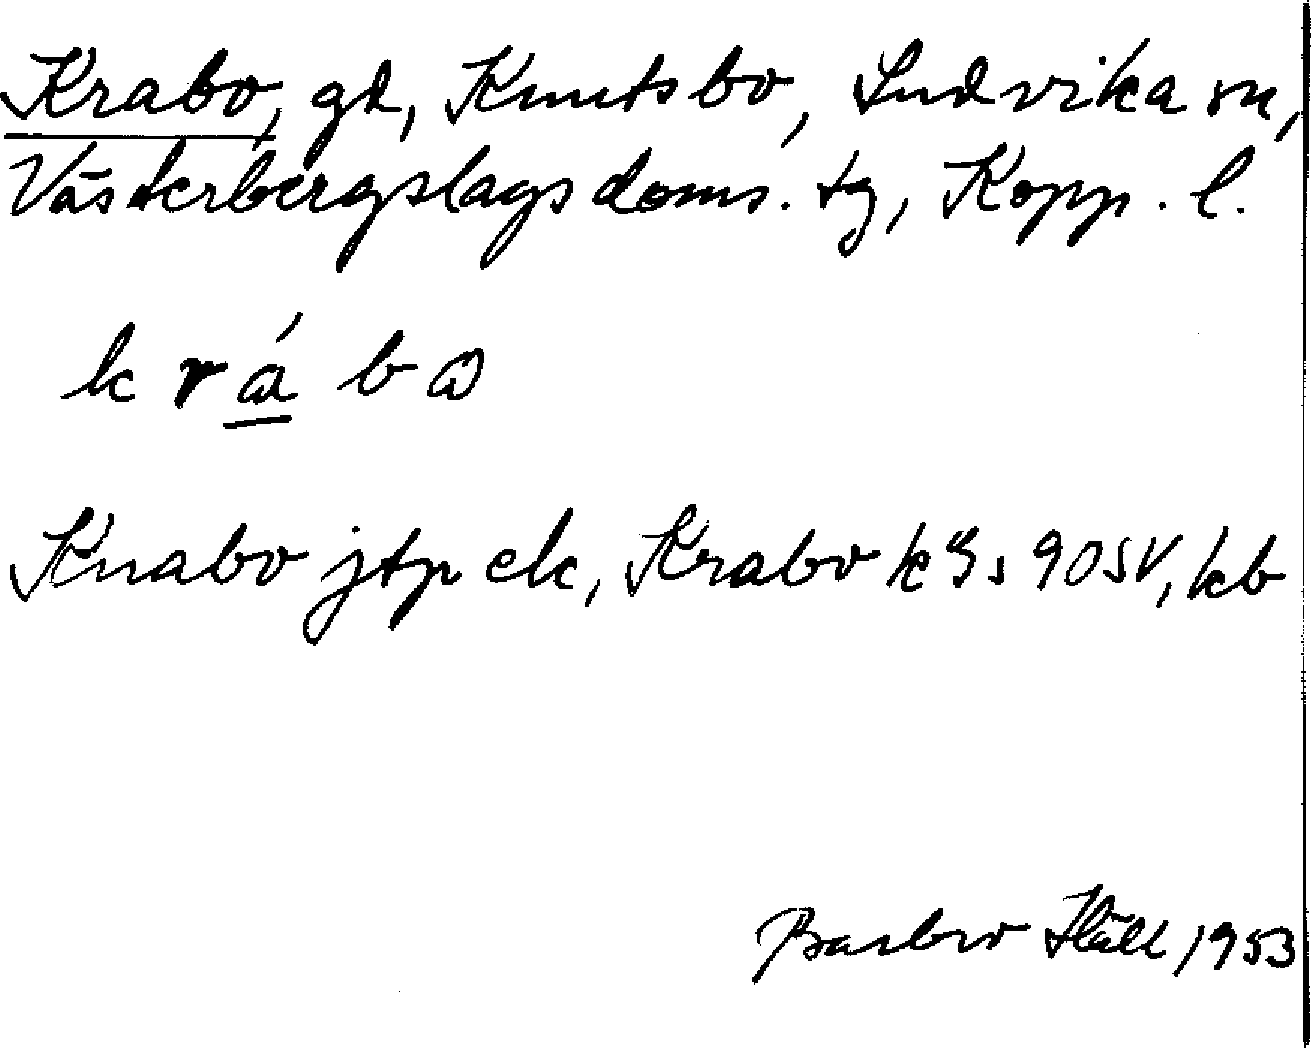 Krabo, gd, Knutsbo, Ludvika sn,
Västerbergslags doms. tg, Kopp. l.
krábω
Knabo jtp ek, Krabo k 90 SV, kb
Barbro Häll 1953